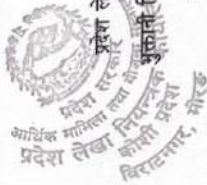 प्रदेश सरकार
आर्थिक मामिला तथा योजना
प्रदेश लेखा नियन्त्रक
कोशी प्रदेश
विराटनगर, मोरङ
प्रदेश ले
भुक्तानी